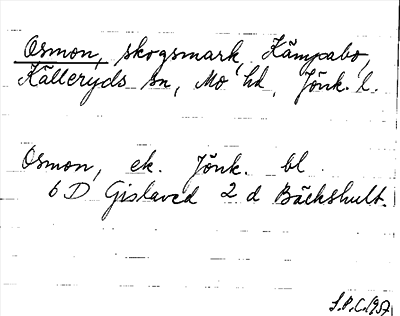 Osmon, skogsmark, Kämpabo,
Källeryds sn, Mo hd, Jönk. l.
Osmon, ek. Jönk. bl
6 D Gislaved 2 d Bäckshult.
S.P.C. 1957